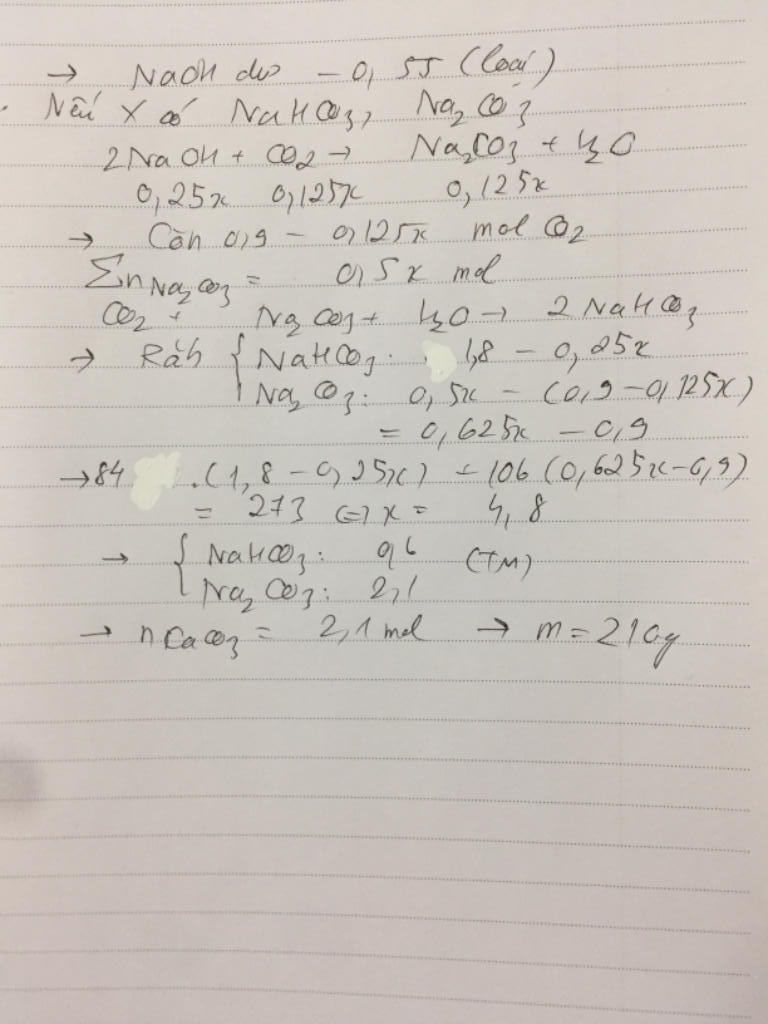 → NaOH dư - 0,55 (loại)
. Nếu X có NaHCO3, Na2CO3
2NaOH + CO2 → Na2CO3 + H2O
0,25x 0,125x 0,125x
→ Còn 0,9 - 0,125x mol CO2
Σn Na2CO3 = 0,5x mol
CO2 + Na2CO3 + H2O → 2NaHCO3
→ Rắn { NaHCO3: 1,8 - 0,25x
Na2CO3: 0,5x - (0,9 - 0,125x)
= 0,625x - 0,9
→ 84 .(1,8 - 0,25x) + 106(0,625x - 0,9)
= 273 ⇔ x = 4,8
→ { NaHCO3: 0,6 (TM)
Na2CO3: 2,1
→ nCaCO3 = 2,1 mol → m = 210g